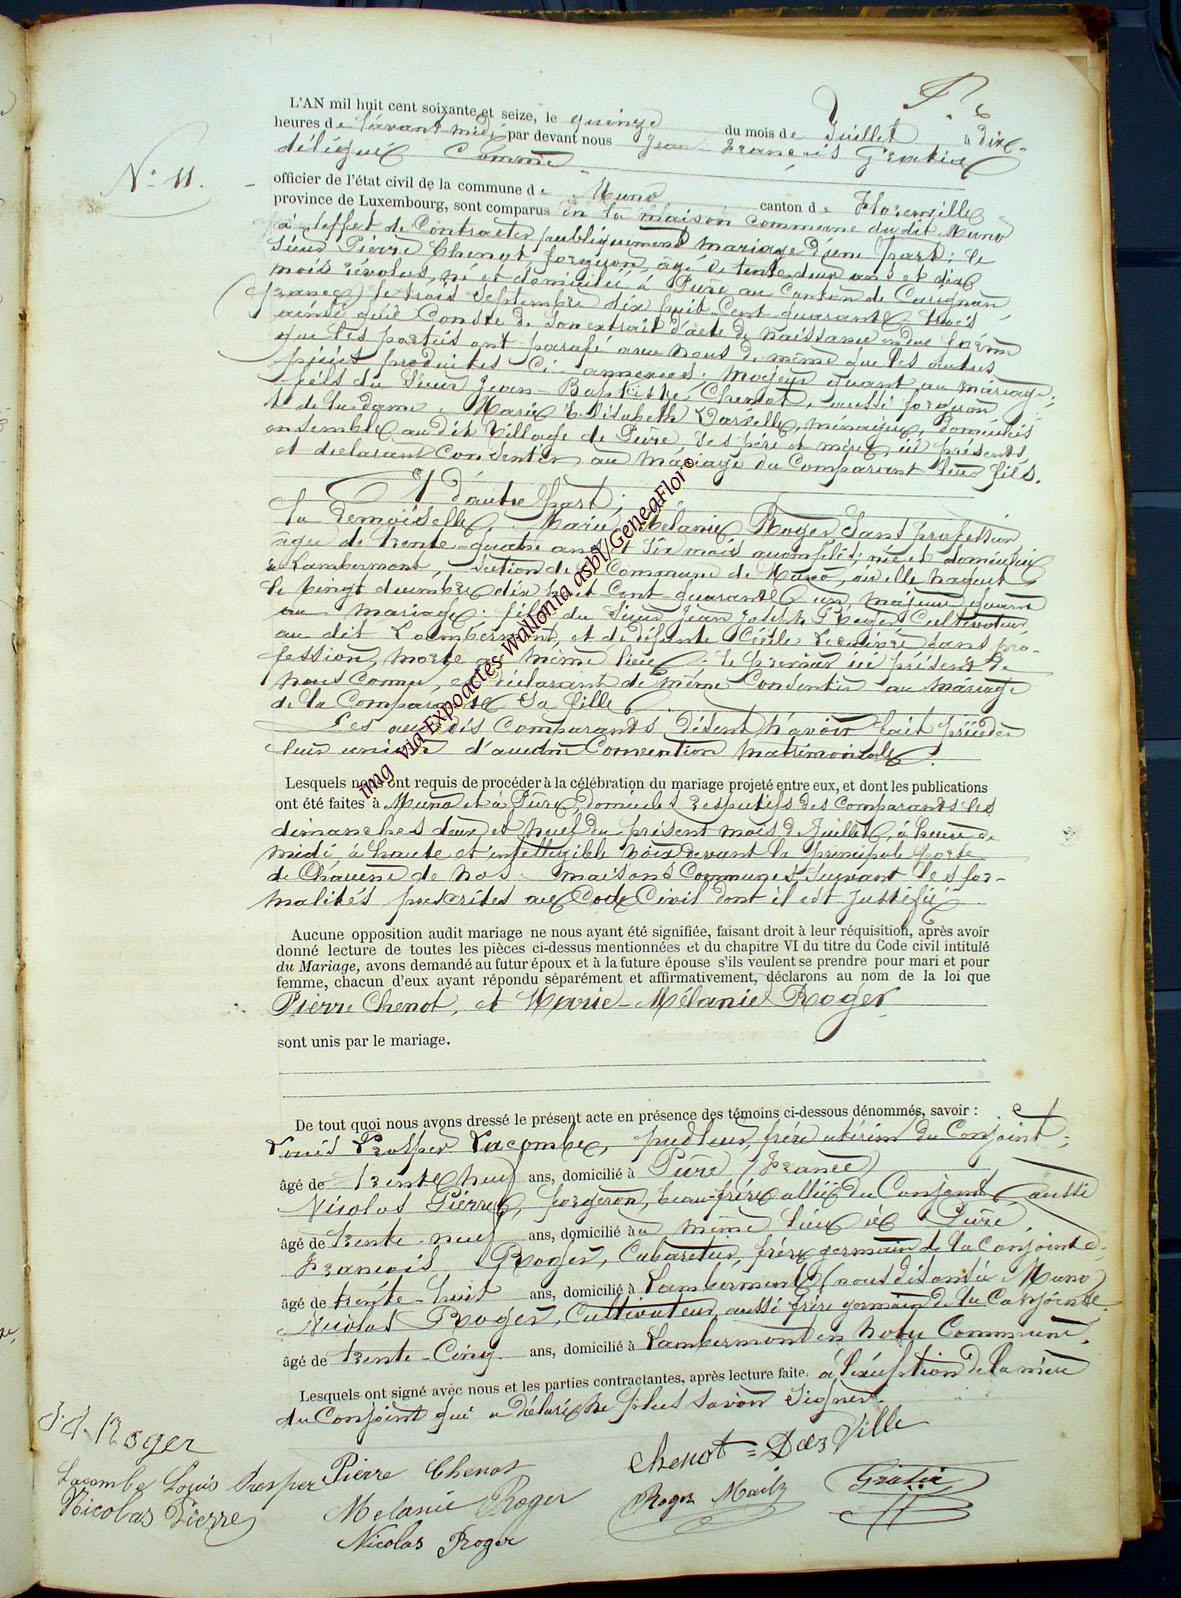 N° 11.
L'AN mil huit cent soixante et seize, le quinze du mois de Juillet à dix
heures de l'avant-midi par devant nous Jean François Gratia
délégué comme
officier de l'état civil de la commune de Muno canton de Florenville
province de Luxembourg, sont comparus en la maison commune du dit Muno
à l'effet de contracter publiquement mariage d'une part: le
Sieur Pierre Chenot, forgeron, âgé de trente deux ans et dix
mois révolus, né et domicilié à Puré au Canton de Carignan
(france) le trois Septembre dix huit Cent quarante-trois
ainsi qu'il Conste de Son extrait d'acte de naissance en due forme
que les parties ont parafé avec nous de même que les autres
pièces produites Ci annexées; majeur quant au mariage;
fils du Sieur Jean-Baptiste Chenot, aussi forgeron,
et de la dame Marie Elisabeth Darville, ménagère, domiciliés
ensemble au dit Village de Puré, les père et mère ici présents
et déclarant Consentir au mariage du Comparant leur fils.
Et d'autre part;
la demoiselle Marie Mélanie Roger Sans profession
âgée de trente-quatre ans et Six mois accomplis, née et domiciliée
à Lambermont, Section de la Commune de Muno, où elle naquit
le vingt décembre dix huit Cent quarante un, majeure quant
au mariage; fille du Sieur Jean Joseph Roger Cultivateur
au dit Lambermont, et de défunte Cécile sans pro-
fession, morte au même lieu; le premier ici présent de
nous Connu, et déclarant de même Consentir au mariage
de la Comparante Sa fille
Les Comparants disent n'avoir fait précéder
leur union d'aucune Convention matrimoniale.
Lesquels nous ont requis de procéder à la célébration du mariage projeté entre eux, et dont les publications
ont été faites à Muno et à Puré, domiciles respectifs des Comparants les
dimanches deux et neuf du présent mois de Juillet, à heure de
midi à haute et intelligible voix devant la principale porte
de Chacune de nos maisons Communes Suivant les for-
malités prescrites au Code Civil dont il est Justifié
Aucune opposition audit mariage ne nous ayant été signifiée, faisant droit à leur réquisition, après avoir
donné lecture de toutes les pièces ci-dessus mentionnées et du chapitre VI du titre du Code civil intitulé
du Mariage, avons demandé au futur époux et à la future épouse s'ils veulent se prendre pour mari et pour
femme, chacun d'eux ayant répondu séparément et affirmativement, déclarons au nom de la loi que
Pierre Chenot, et Marie-Mélanie Roger
sont unis par le mariage.
De tout quoi nous avons dressé le présent acte en présence des témoins ci-dessous dénommés, savoir :
Louis Prosper Lacombe, frère utérin du Conjoint;
âgé de trente neuf ans, domicilié à Puré (France)
Nicolas Pierre, forgeron, beau-frère allié du Conjoint, aussi
âgé de trente-neuf ans, domicilié au même lieu de Puré,
François Roger, Cabaretier, frère germain de la Conjointe
âgé de trente-huit ans, domicilié à Lambermont Muno)
Nicolas Roger, Cultivateur, aussi frère germain de la Conjointe
âgé de trente-Cinq ans, domicilié à Lambermont en notre Commune.
Lesquels ont signé avec nous et les parties contractantes, après lecture faite. à l'exception de la mère
du Conjoint qui a déclaré ne plus savoir Signer.
J.J. Roger
Lacombe Louis Prosper
Nicolas Pierre
Pierre Chenot
Mélanie Roger
Nicolas Roger
Chenot = DarVille
Roger
Gratia
img via Expoactes-Wallonia asbl/GeneaFlor©